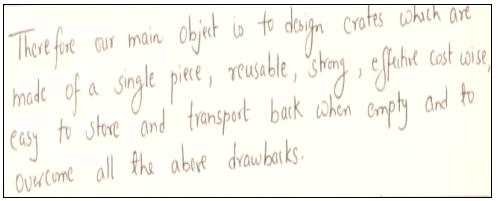 Therefore our main object is to design crates which are
made of a single piece, reusable, strong, effective cost wise,
easy to store and transport back when empty and to
overcome all the above drawbacks.